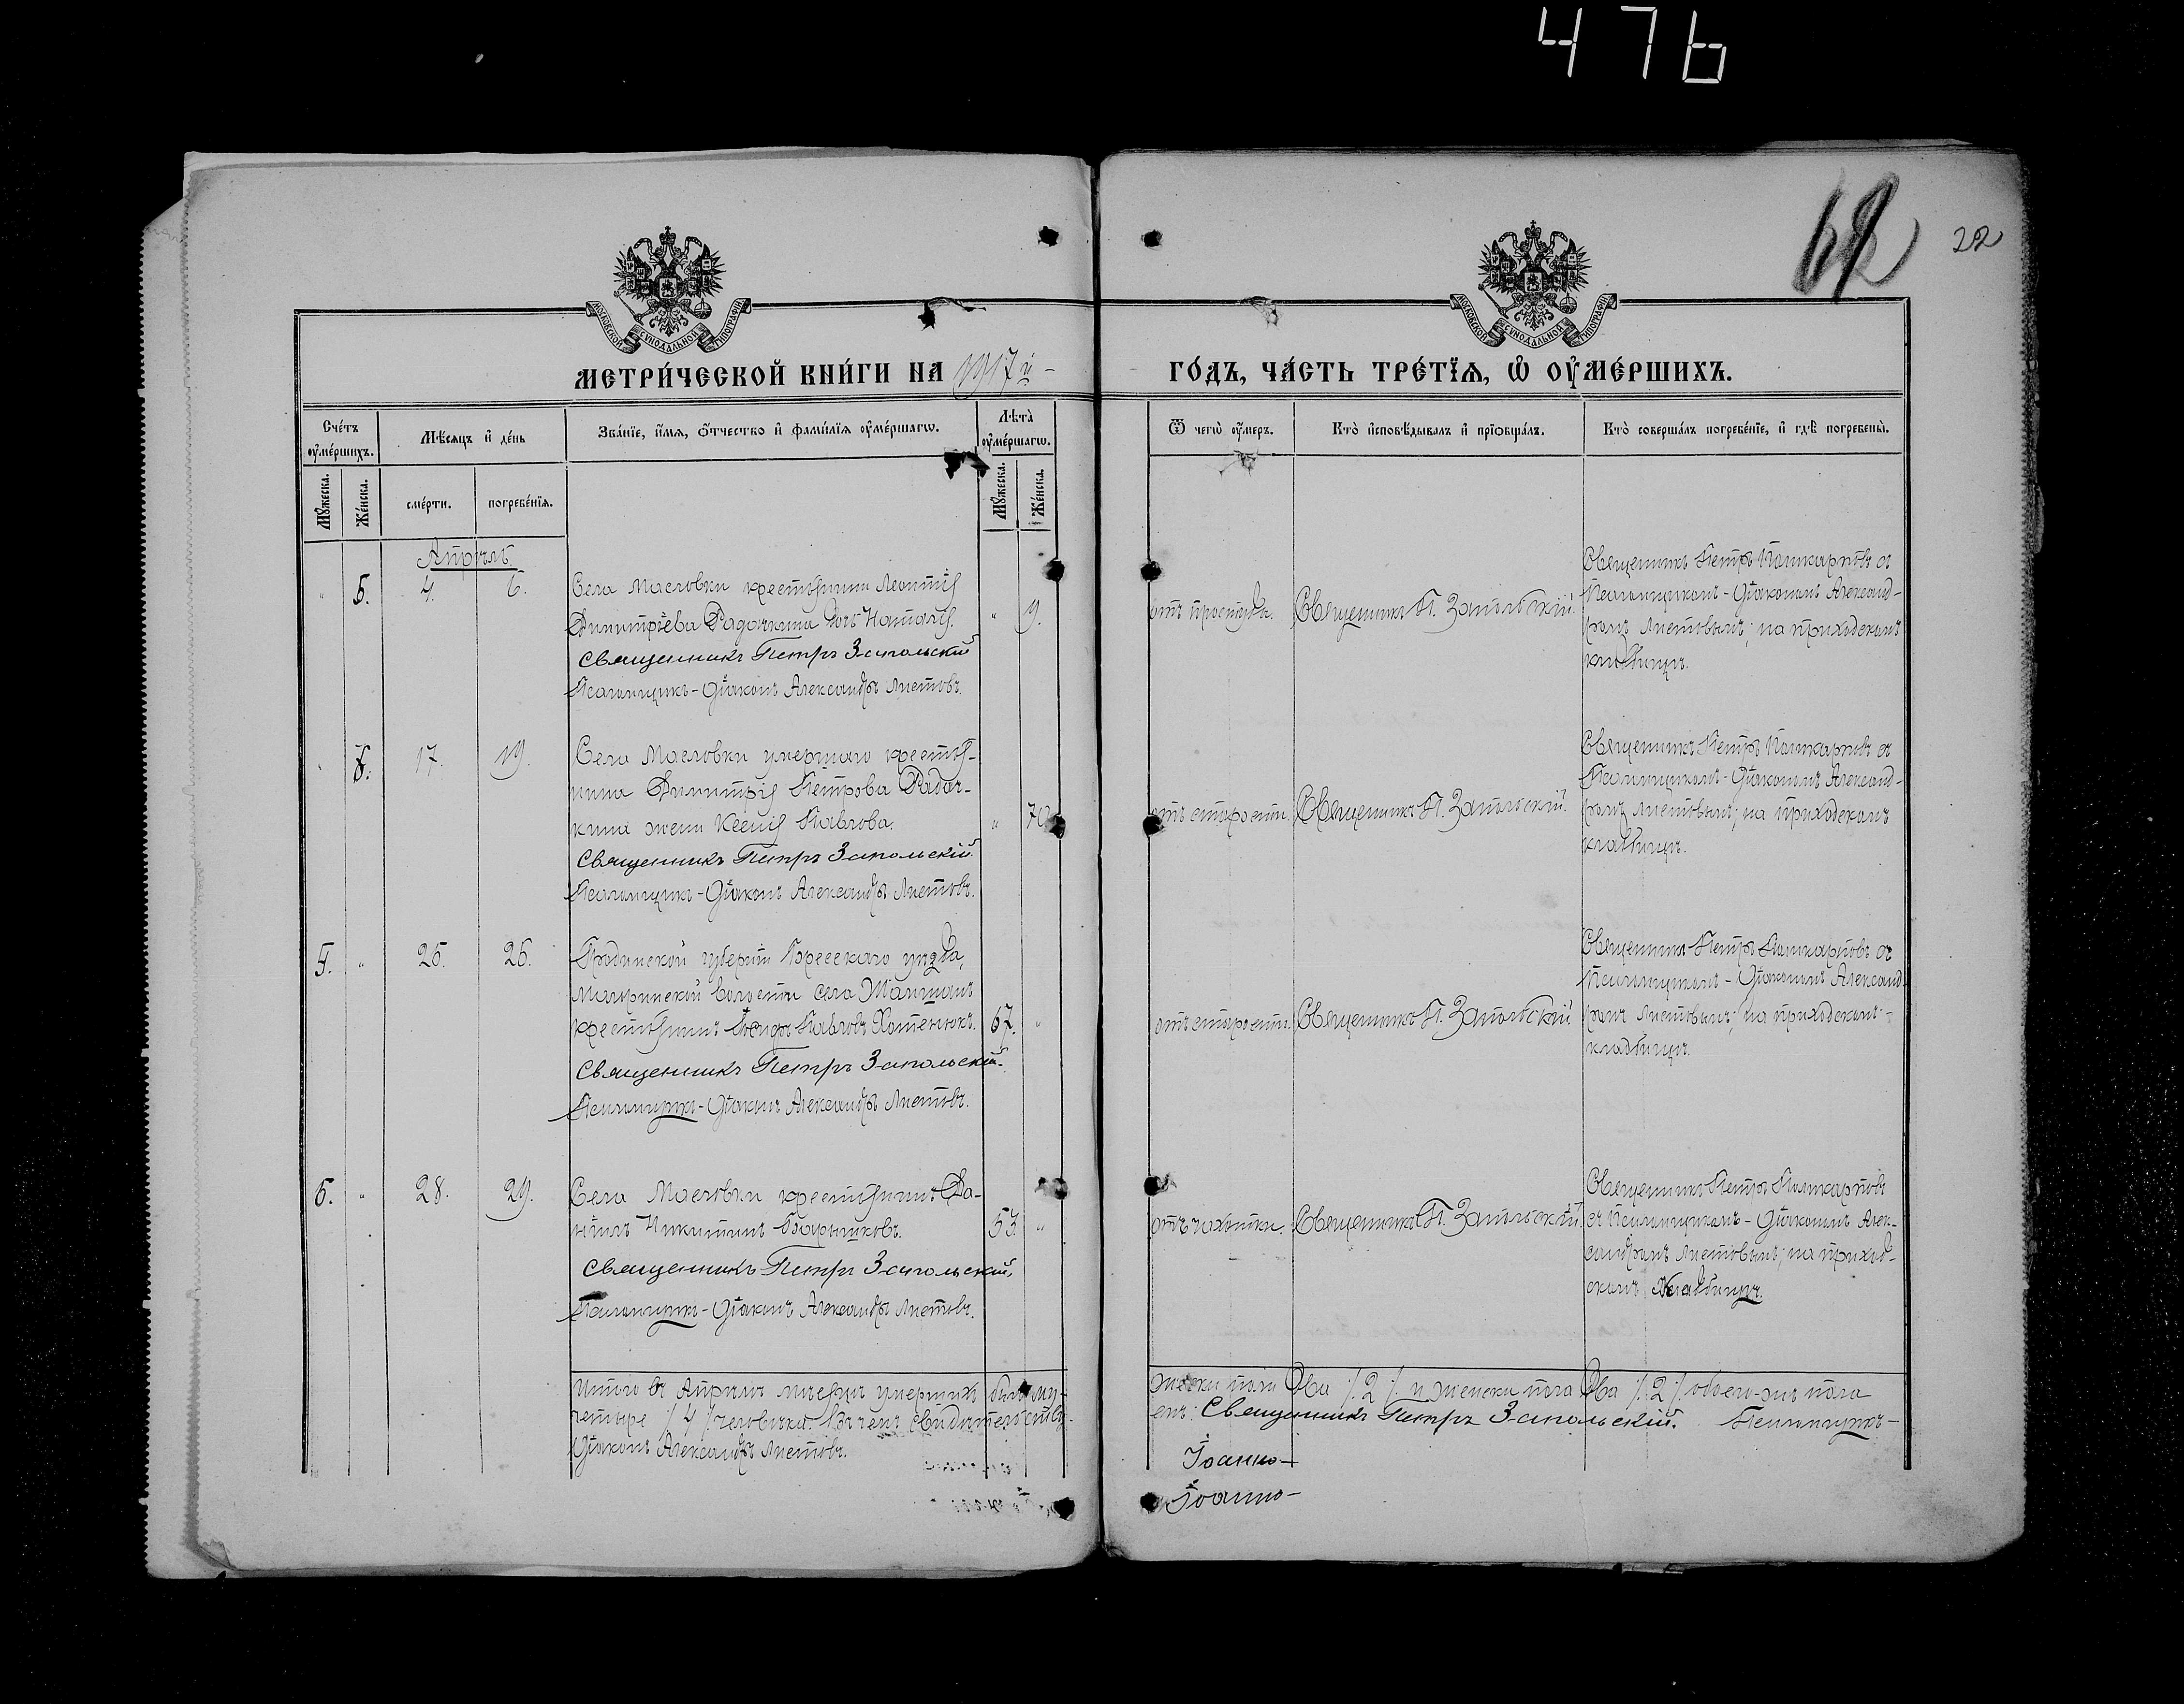 476
62
22
МОСКОВСКОЙ СѴНОДАЛЬНОЙ ТИПОГРАФІИ
МОСКОВСКОЙ СѴНОДАЛЬНОЙ ТИПОГРАФІИ
МЕТРИ́ЧЕСКОЙ КНИ́ГИ НА 1917й -
ГО́ДЪ, ЧА́СТЬ ТРЕ́ТІЯ, Ѿ ОУМЕ́РШИХЪ.
Сче́тъ оуме́ршихъ.
Мѣ́сяцъ и де́нь
Зва́ніе, и́мя, о́тчество и фами́лія оуме́ршагѡ.
Лѣ́та оуме́ршагѡ.
Ѿ чегѡ̀ оу́меръ.
Кто̀ исповѣ́дывалъ и пріобща́лъ.
Кто̀ соверша́лъ погребе́ніе, и гдѣ̀ погребены̀.
Му́жеска.
Же́нска.
сме́рти.
погребе́нія.
Му́жеска.
Же́нска.
Апрѣль.
" 5. 4. 6.
Села Масловки крестьянина Леонтія
Димитріева Радочкина дочь Наталія.
Священникъ Петръ Запольскій
Псаломщикъ-Діаконъ Александръ Листовъ.
" 9.
отъ простуды.
Священникъ П. Запольскій.
Священникъ Петръ Поликарповъ съ
Псаломщикомъ-Діакономъ Александ-
ромъ Листовымъ; на приходскомъ
кладбищѣ.
" 6. 17. 19.
Села Масловки умершаго крестья-
нина Димитрія Петрова Радоч-
кина жена Ксенія Павлова.
Священникъ Петръ Запольскій.
Псаломщикъ-Діаконъ Александръ Листовъ.
" 70
отъ старости.
Священникъ П. Запольскій.
Священникъ Петръ Поликарповъ съ
Псаломщикомъ-Діакономъ Александ-
ромъ Листовымъ; на приходскомъ
кладбищѣ.
5. " 25. 26.
Гродненской губерніи Брестскаго уѣзда,
волости села
крестьянинъ Павловъ Хотенюкъ.
Священникъ Петръ Запольскій.
Псаломщикъ-Діаконъ Александръ Листовъ.
67. "
отъ старости.
Священникъ П. Запольскій.
Священникъ Петръ Поликарповъ съ
Псаломщикомъ-Діакономъ Александ-
ромъ Листовымъ; на приходскомъ
кладбищѣ.
6. " 28. 29.
Села Масловки крестьянинъ Да-
ніилъ Никитинъ Барышковъ.
Священникъ Петръ Запольскій,
Псаломщикъ-Діаконъ Александръ Листовъ.
53 "
отъ чахотки.
Священникъ П. Запольскій.
Священникъ Петръ Поликарповъ
съ Псаломщикомъ-Діакономъ Алек-
сандромъ Листовымъ; на приход-
скомъ кладбищѣ.
Итого въ Апрѣлѣ мѣсяцѣ умершихъ было му-
жеска пола два /2/ и женска пола два /2/ обоего-же пола
четыре /4/ человѣка. Въ чемъ свидѣтельству-
емъ: Священникъ Петръ Запольскій. Псаломщикъ-
Діаконъ Александръ Листовъ.
Іоанно-
Іоанно-